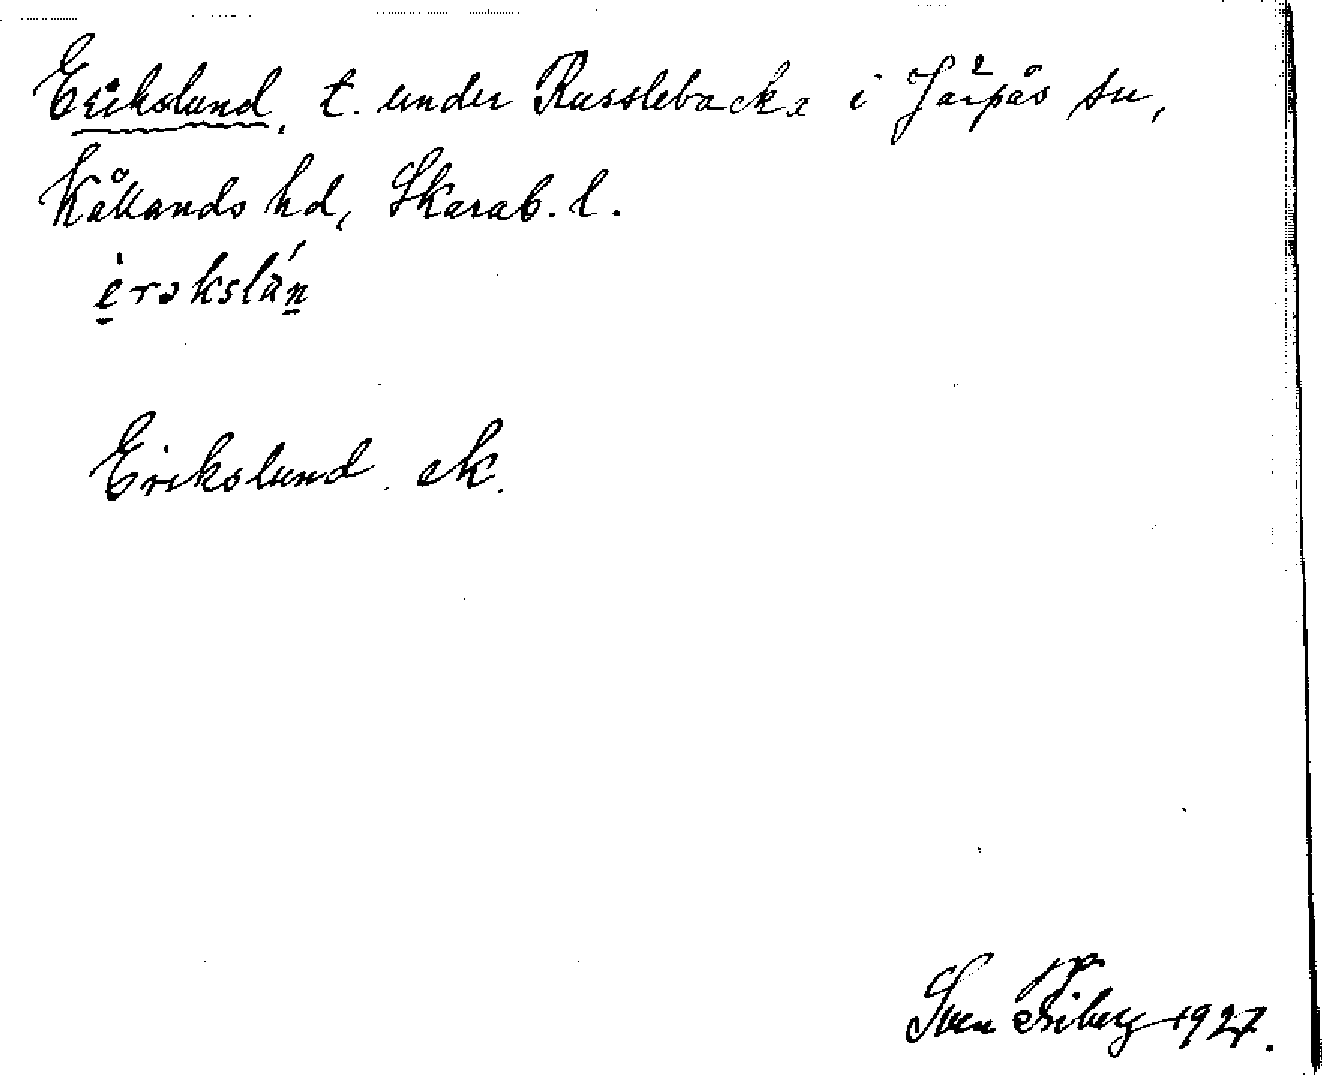 Erikslund, t. under Russlebacka i Järpås sn,
Kållands hd, Skarab. l.
èrəkslán
Erikslund ek.
Sven Friberg 1927.